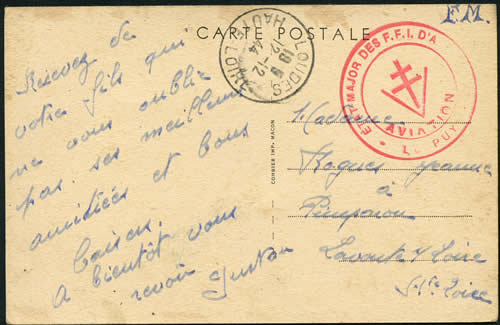 CARTE POSTALE
F.M.
LOUDES
HAUTE-LOIRE
18
12-12
44
ETAT MAJOR DES F.F.I. D'A
AVIATION
LE PUY
COMBIER IMP. MACON
Recevez de
votre fils qui
ne vous oublie
pas ses meilleurs
amitiées et bons
baisers.
A bientôt vous
revoir Gustau
Madame
Roques Jeanne
à
Lavoute s/ Loire
Hte Loire